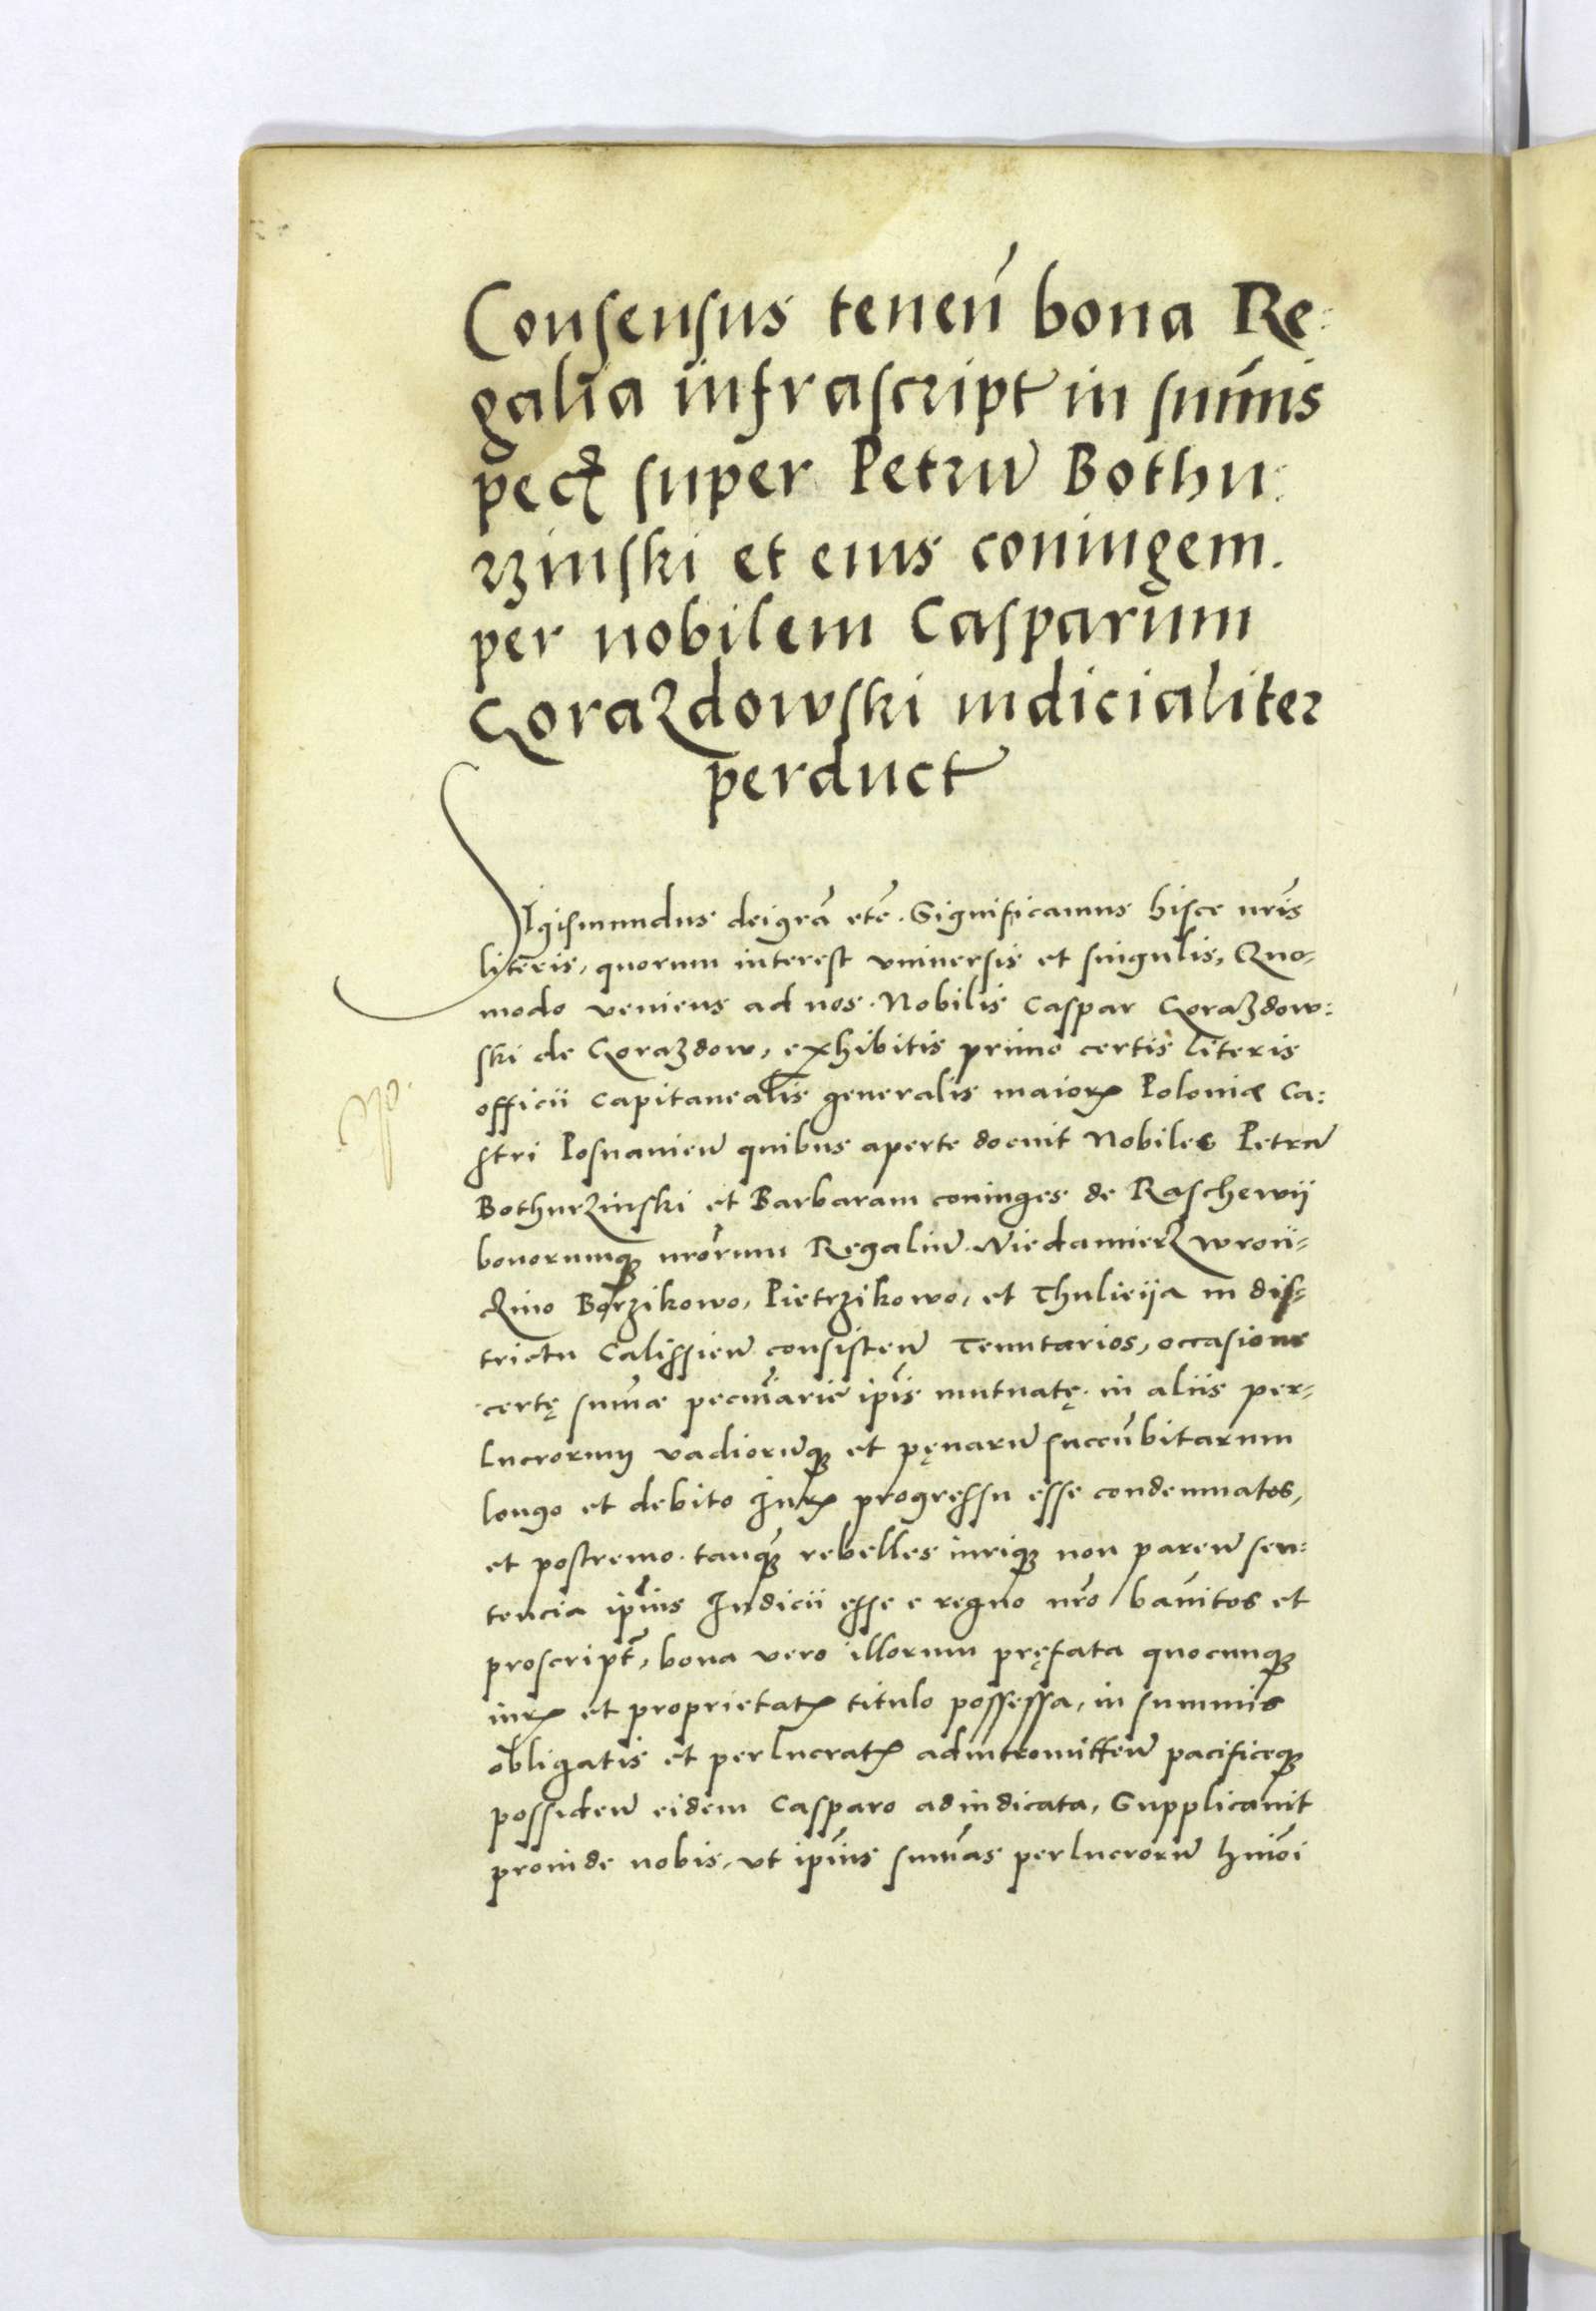 Consensus teneñ bona Re:
galia infrascript in sum̃is
pec̃ super Petrum̃ Bothu:
rzinski et eius coniugem.
per nobilem Casparum
Gorazdowski iudicialiter
perduct
Sigismundus dei gr̃a etc̃. Significamus hisce nr̃is
literis, quorum interest vniuersis et singulis, Quo-
modo veniens ad nos. Nobilis Caspar Gorazdow:
ski de Gorazdow, exhibitis primo certis literis
officii Capitanealis generalis maioris Poloniæ Ca:
stri Posnanien̄ quibus aperte docuit Nobiles Petrū
Bothurzinski et Barbaram coniuges de Raschewij
bonorumqꝫ nr̃orum Regaliū. Niedamierz wroni-
Borzikowo, Pietrzikowo, et Thulieija in dis-
trictu Calissien̄ consisten̄ Tenutarios, occasione
certę sum̃æ pecuniariæ ip̃is mutuatę. in aliis per-
lucrorum vadiorūqꝫ et pęnarū succūbitarum
longo et debito Iuris progressu esse condemnatos,
et postremo. tanqꝫ rebelles iuriqꝫ non paren̄ sen:
tencia ip̃ius Iudicii esse e regno nr̃o bannitos et
proscript̃, bona vero illorum pręfata quocunqꝫ
iuris et proprietatis titulo possessa, in summis
obligatis et perlucratis ad intromitten̄ pacificeqꝫ
possiden̄ eidem Casparo adiudicata, Supplicauit
proinde nobis, vt ip̃ius sum̃as perlucrorū hm̃oi